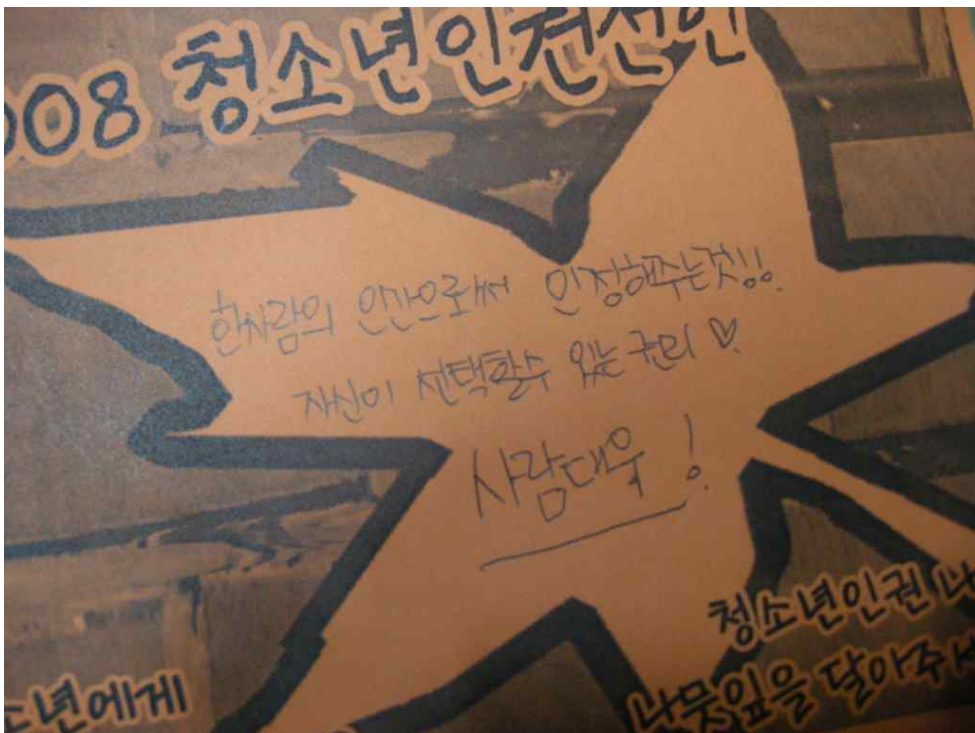 008 청소년인권선언
한사람의 인간으로써 인정해주는것!!
자신이 선택할수 있는 권리 ♡.
사람대우!
청소년인권 나
소년에게
나뭇잎을 달아주세